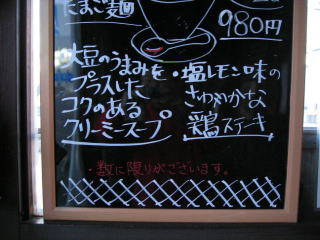 たまご麺
980円
大豆のうまみを
プラスした
コクのある
クリーミースープ
・塩レモン味の
さわやかな
鶏ステーキ
・数に限りがございます。